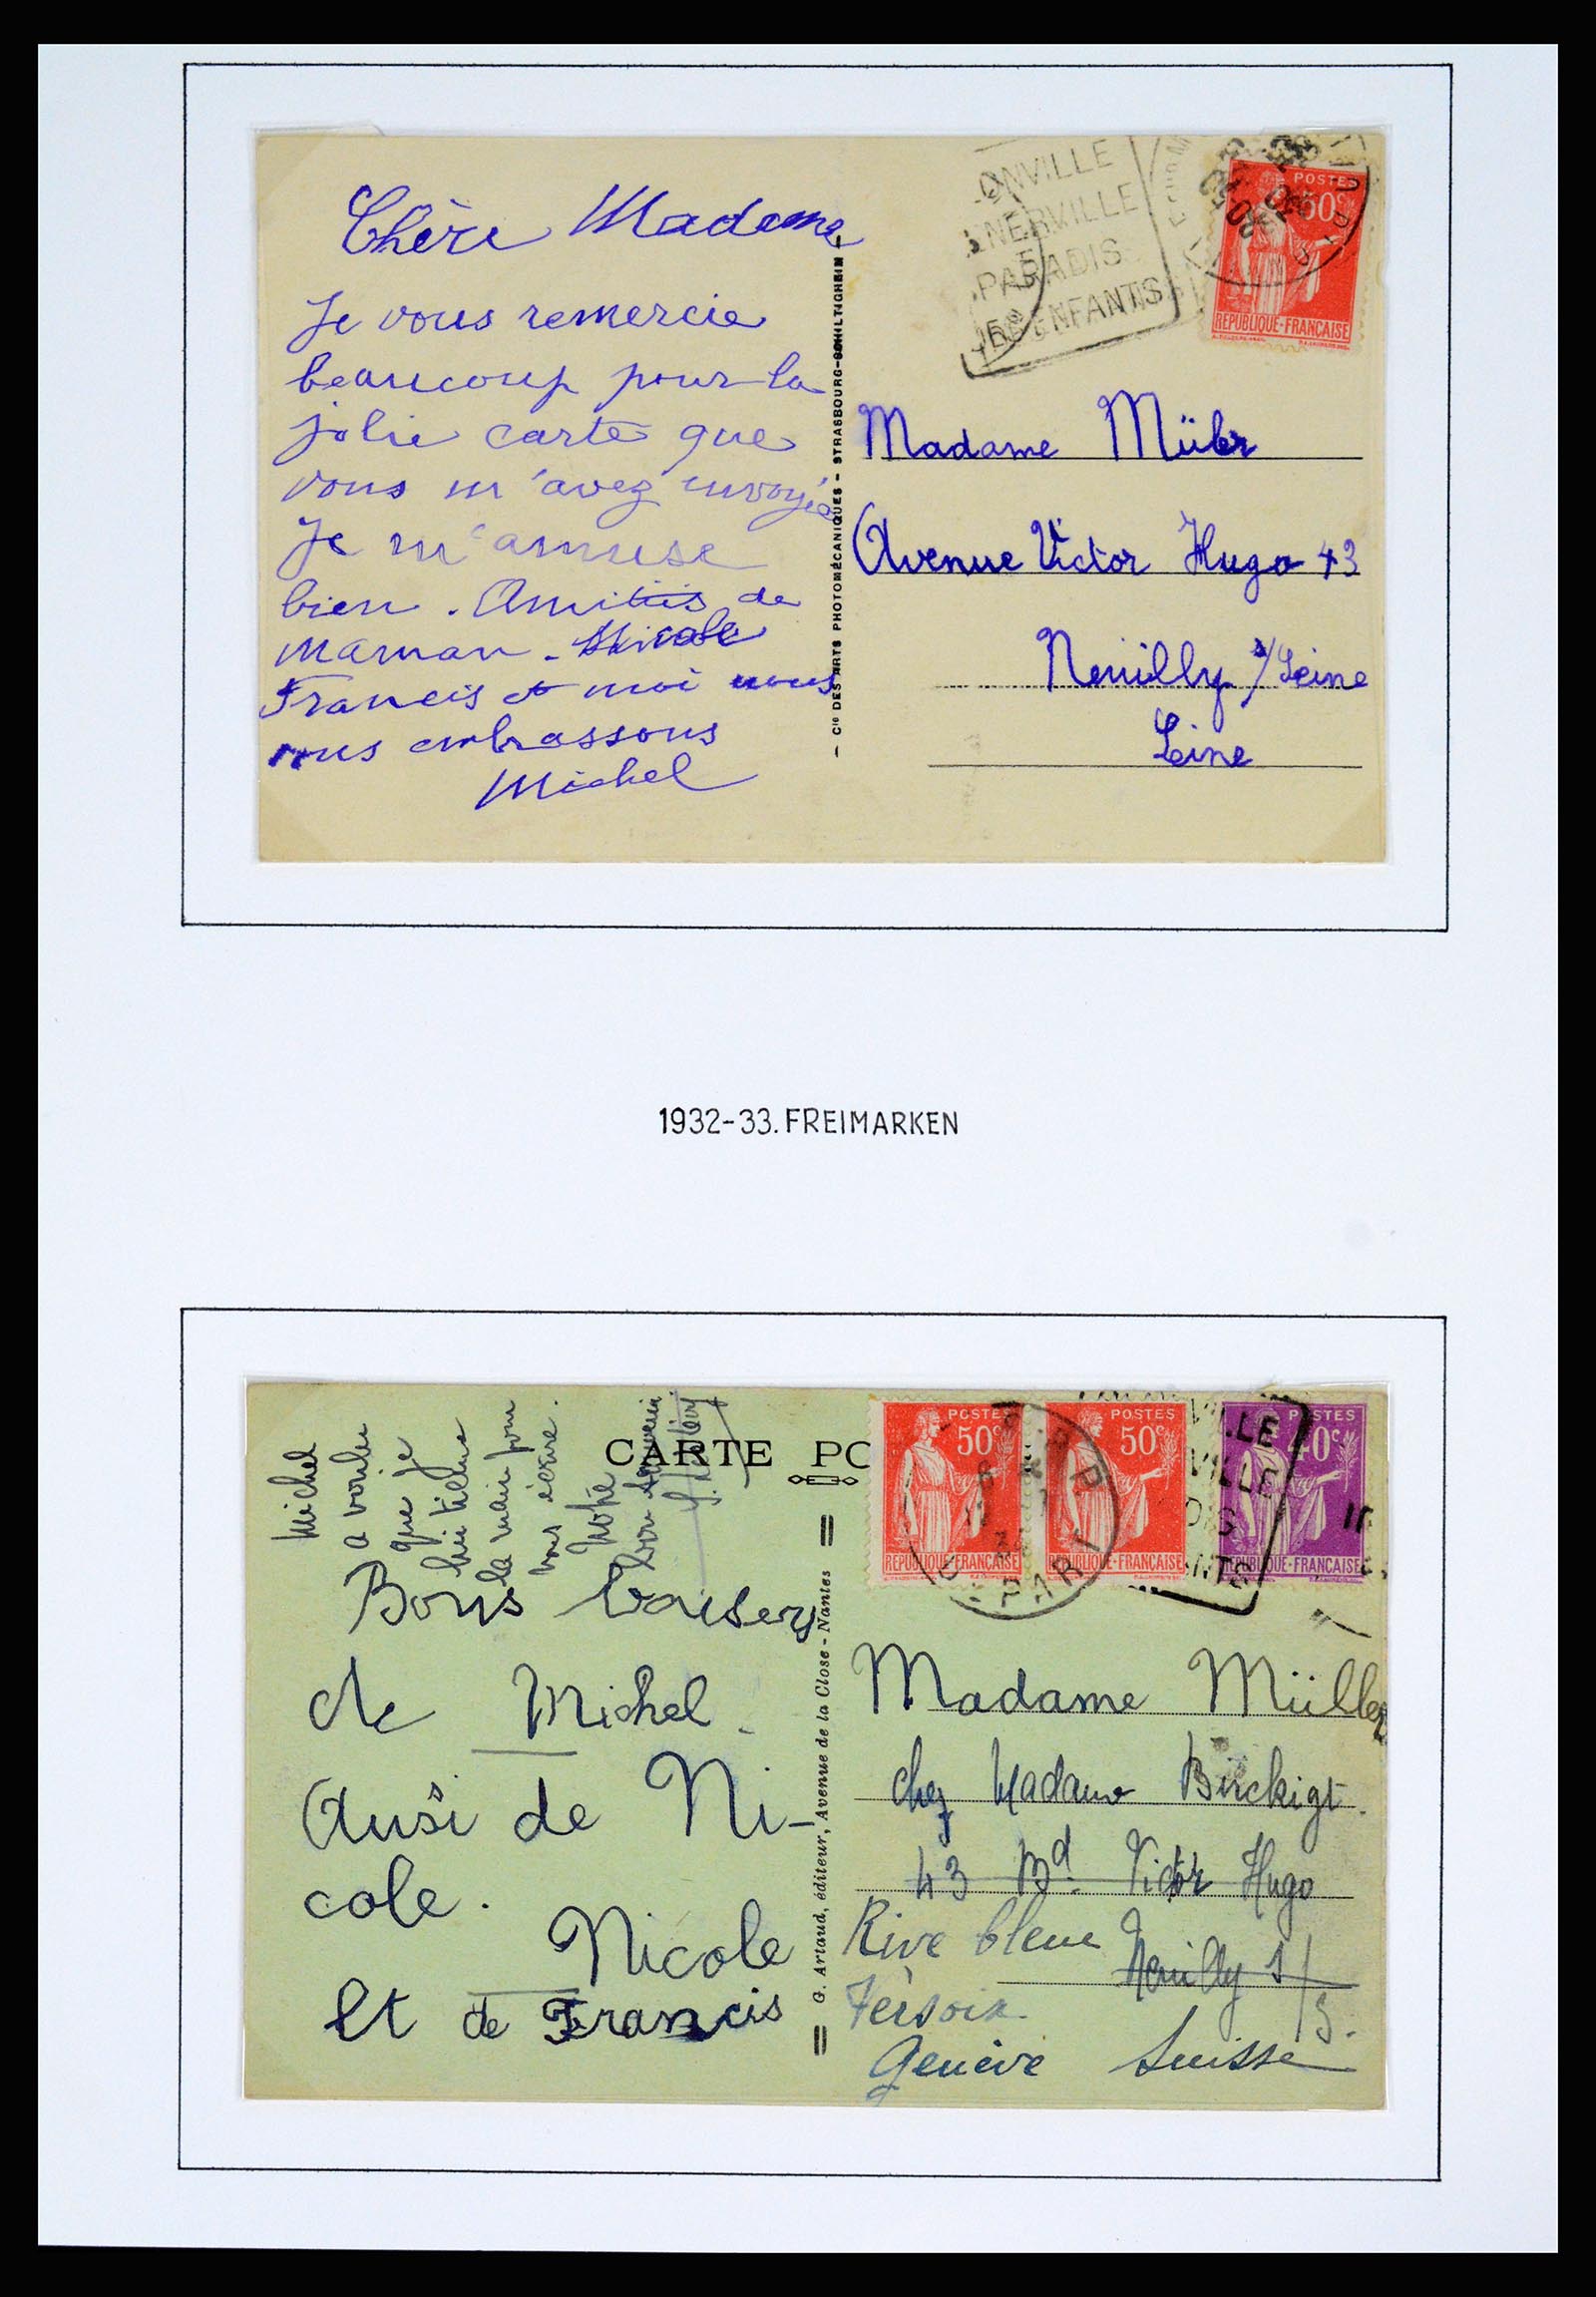 Chère Madame
Je vous remercie
beaucoup pour la
jolie carte que
vous m'avez envoyée
Je m'amuse
bien. Amitiés de
maman. Nicole
Francis et moi nous
vous embrassons
Michel
— Cie DES ARTS PHOTOMÉCANIQUES - STRASBOURG-SCHILTIGHEIM —
ONVILLE
NERVILLE
PARADIS
ENFANTS
POSTES
50c
REPUBLIQUE-FRANCAISE
Madame Mülr
Avenue Victor Hugo 43
Neuilly s/Seine
Seine
1932-33. FREIMARKEN
Michel
a voulu
que je
lui tienne
la main pour
vous écrire.
Notre
bon souvenir
CARTE PO
Bons baisers
de Michel.
Ausi de Ni-
cole.
Nicole
Et de Francis
G. Artaud, éditeur, Avenue de la Close - Nantes
POSTES
50c
REPUBLIQUE-FRANCAISE
POSTES
50c
REPUBLIQUE-FRANCAISE
POSTES
40c
REPUBLIQUE-FRANCAISE
VILLE
VILLE
DIS
NTS
Madame Müller
chez Madame Birckigt.
43 Bd. Victor Hugo
Neuilly s/S.
Rive bleue
Versoix.
Genève Suisse